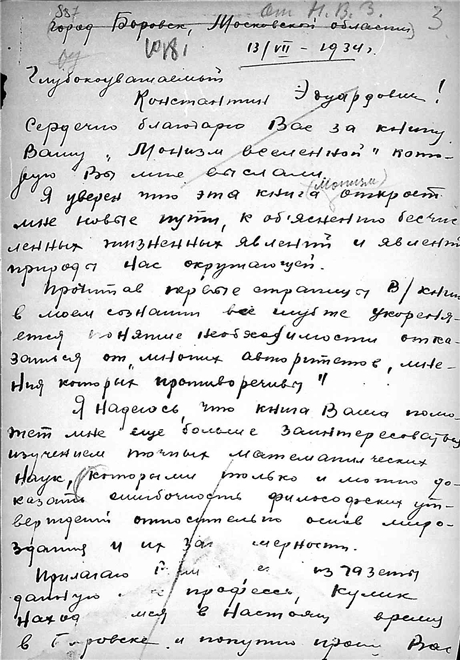 587 от Н. В. З. 3
(город Боровск, Московской области)
13/VII - 1934 г.
Глубокоуважаемый
Константин Эдуардович!
Сердечно благодарю Вас за книгу
Вашу „Монизм вселенной" кото-
рую Вы мне выслали
(Монизм)
Я уверен что эта книга откроет
мне новые пути, к об'яснению бесчис
ленных жизненных явлений и явлений
природы нас окружающей.
Прочитав первые страницы В/ книги
в моем сознании все глубже укореня-
ется понятие необходимости отка-
заться от „многих авторитетов, мне-
ния которых противоречивы"
Я надеюсь, что книга Ваша помо-
жет мне еще больше заинтересоваться
изучением точных математических
наук, которыми только и можно до-
казать ошибочность философских ут-
верждений относительно основ миро-
здания и их за мерности.
Прилагаю из газеты
данную профессор Кулик
наход мся в настоящ время
в Боровске и попутно прошу Вас